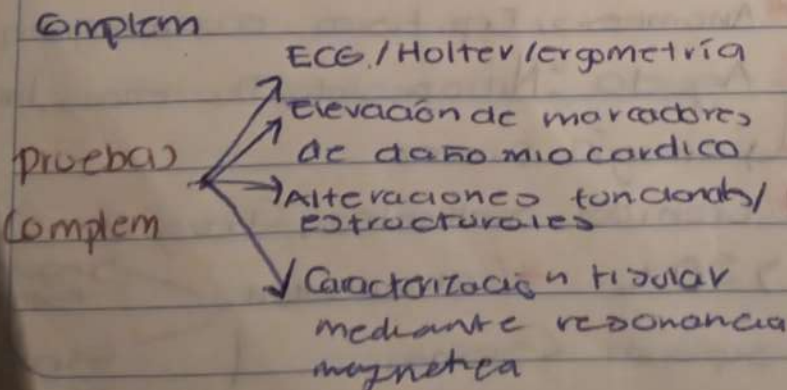 Complem
ECG/Holter/ergometría
Elevación de marcadores
de daño miocardico
Pruebas
Alteraciones funcionales/
estructurales
Complem
Caracterización tisular
mediante resonancia
magnetica